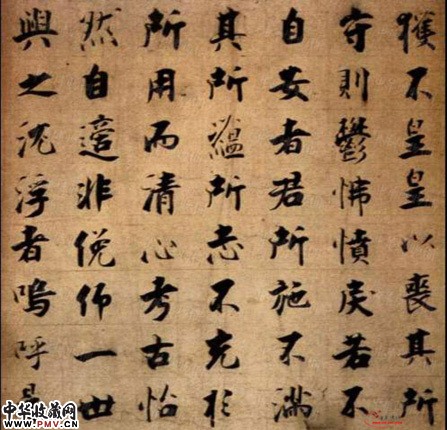 獲不皇皇以喪其所
守則鬱怫憤戾若不
自安者君所施不滿
其所蘊所志不充於
所用而清心考古怡
然自適非俛仰一世
與之沈浮者嗚呼
中华收藏网
WWW.PMV.CN